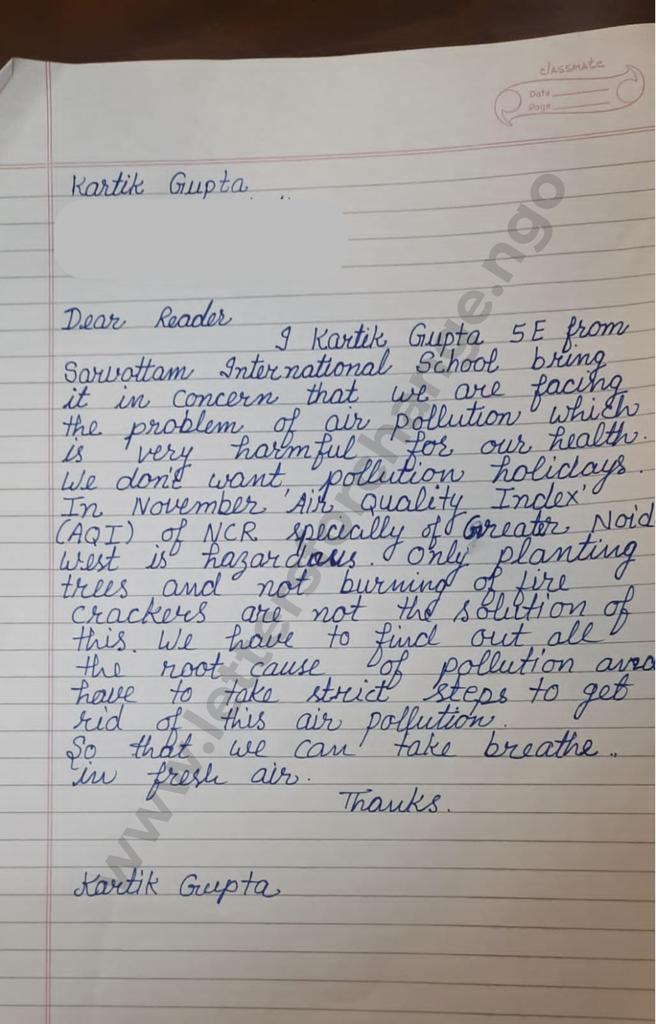 classmate
Date
Page
Kartik Gupta
Dear Reader
I Kartik Gupta 5E from
Sarvottam International School bring
it in concern that we are facing
the problem of air pollution which
is very harmful for our health.
We done want pollution holidays.
In November 'Air Quality Index'
(AQI) of NCR specially of Greater Noid
West is hazardous. Only planting
trees and not burning of fire
crackers are not the solution of
this. We have to find out all
the root cause of pollution and
have to take strict steps to get
rid of this air pollution.
So that we can take breathe..
in fresh air.
Thanks.
Kartik Gupta
www.lettersforchange.ngo